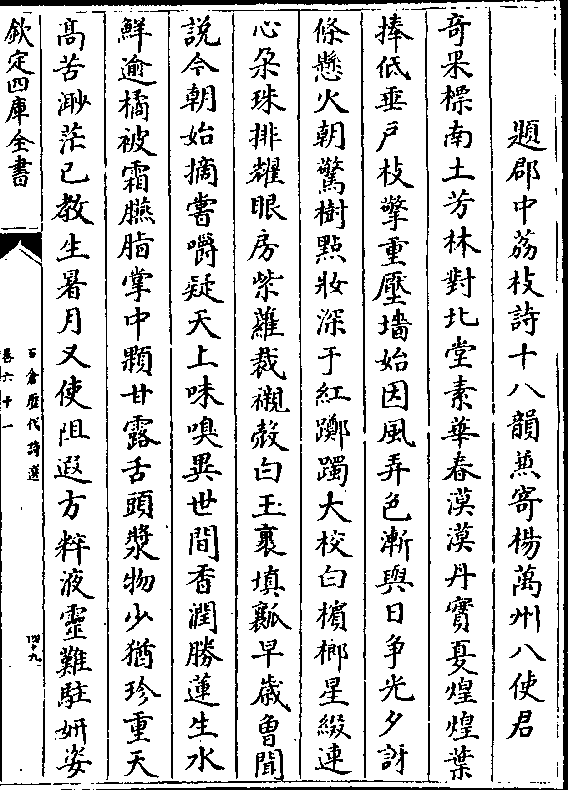 題郡中荔枝詩十八韻蒹寄楊萬州八使君
竒果標南土芳林對北堂素華春漠漠丹實夏煌煌葉
捧低垂戸枝擎重壓墻始因風弄色漸與日争光夕訝
條懸火朝驚樹㸃妝深于紅躑躅大校白檳榔星綴連
心朶珠排耀眼房紫蘿裁襯殻白玉裹填瓤早歳曽聞
說今朝始摘嘗嚼疑天上味嗅異世間香潤勝蓮生水
鮮逾橘被霜臙脂掌中顆甘露舌頭漿物少猶珍重天
髙苦渺茫已教生暑月又使阻遐方粹液靈難駐妍姿
欽定四庫全書
石倉歴代詩選
卷六十一
四十九